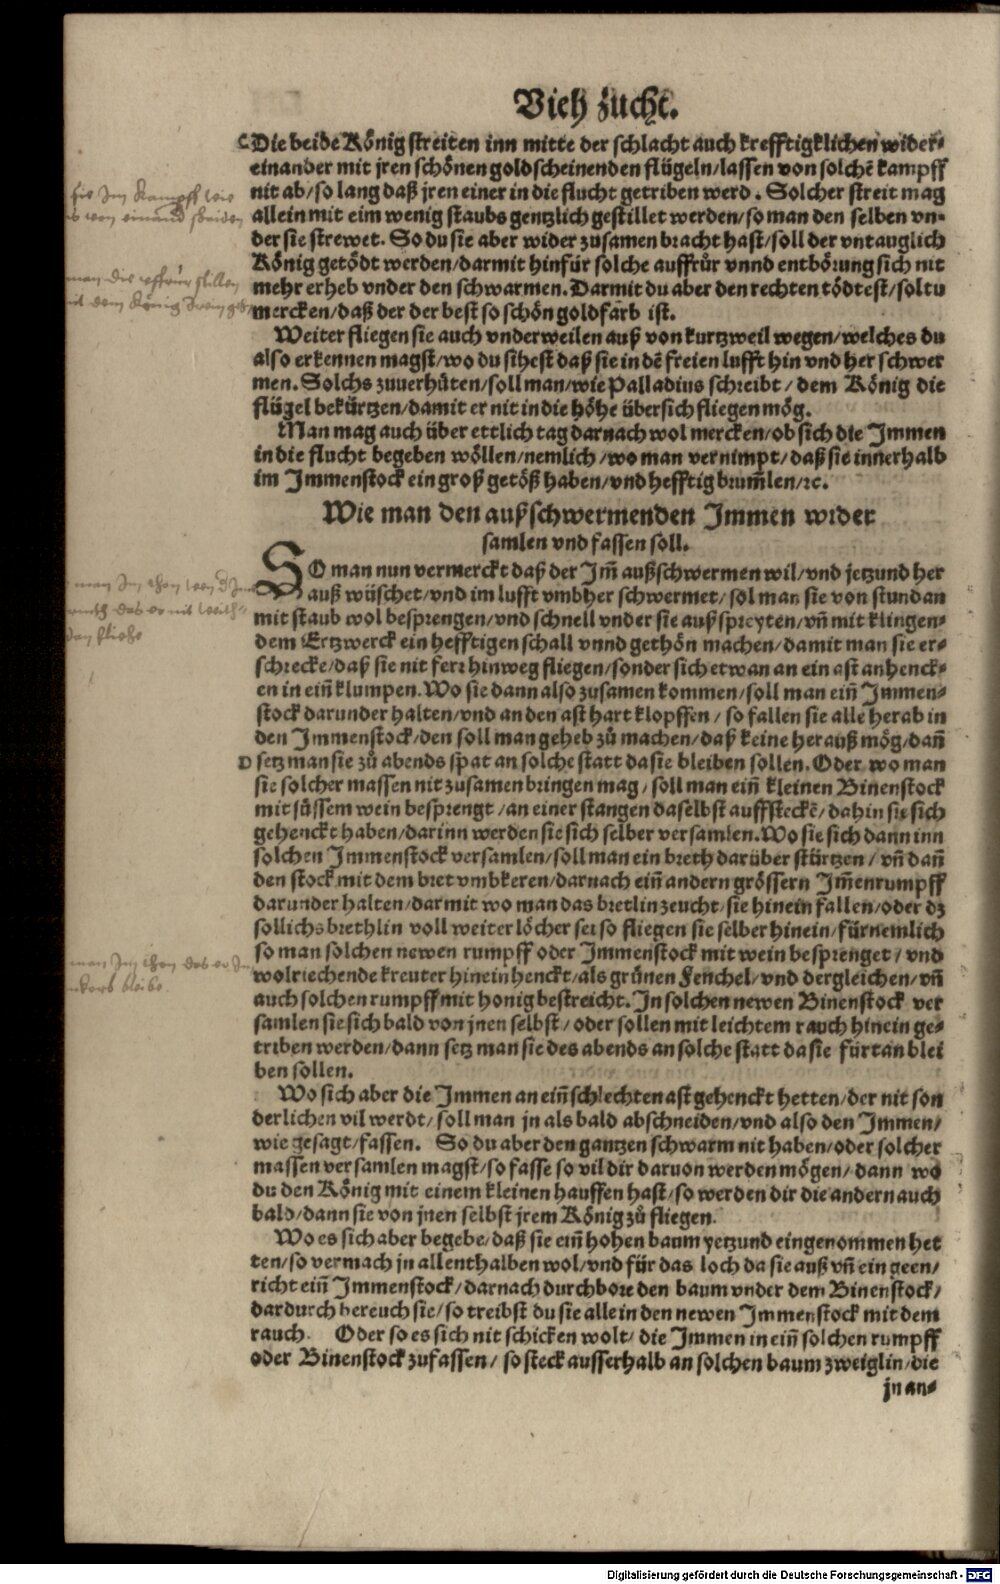 Vieh zucht.
C Die beide König streiten inn mitte der schlacht auch krefftigklichen wider⸗
einander mit jren schönen goldscheinenden flügeln/lassen von solchē kampff
nit ab/so lang daß jren einer in die flucht getriben werd. Solcher streit mag
allein mit eim wenig staubs gentzlich gestillet werden/so man den selben vn⸗
der sie strewet. So du sie aber wider zusamen bracht hast/soll der vntauglich
König getödt werden/darmit hinfür solche auffrůr vnnd entbörung sich nit
mehr erheb vnder den schwarmen. Darmit du aber den rechten tödtest/soltu
mercken/daß der der best so schön goldfarb ist.
Weiter fliegen sie auch vnderweilen auß von kurtzweil wegen/welches du
also erkennen magst/wo du sihest daß sie in dē freien lufft hin vnd her schwer
men. Solchs zuuerhüten/soll man/wie Palladius schreibt/dem König die
flügel bekürtzen/damit er nit in die höhe übersich fliegen mög.
Man mag auch über ettlich tag darnach wol mercken/ob sich die Immen
in die flucht begeben wöllen/nemlich/wo man vernimpt/daß sie innerhalb
im Immenstock ein groß getöß haben/vnd hefftig brum̄len/ꝛc.
Wie man den außschwermenden Immen wider
samlen vnd fassen soll.
SO man nun vermerckt daß der Im̄ außschwermen wil/vnd jetzund her
auß wüschet/vnd im lufft vmbher schwermet/sol man sie von stundan
mit staub wol besprengen/vnd schnell vnder sie außspreyten/vn̄ mit klingen⸗
dem Ertzwerck ein hefftigen schall vnnd gethön machen/damit man sie er⸗
schrecke/daß sie nit ferr hinweg fliegen/sonder sich etwan an ein ast anhenck⸗
en in ein̄ klumpen. Wo sie dann also zusamen kommen/soll man ein̄ Immen⸗
stock darunder halten/vnd an den ast hart klopffen/so fallen sie alle herab in
den Immenstock/den soll man geheb zů machen/daß keine herauß mög/dan̄
D setz man sie zů abends spat an solche statt da sie bleiben sollen. Oder wo man
sie solcher massen nit zusamen bringen mag/soll man ein̄ kleinen Binenstock
mit süssem wein besprengt/an einer stangen daselbst auffsteckē/dahin sie sich
gehenckt haben/darinn werden sie sich selber versamlen. Wo sie sich dann inn
solchen Immenstock versamlen/soll man ein breth darüber stürtzen/vn̄ dan̄
den stock mit dem bret vmbkeren/darnach ein̄ andern grössern Im̄enrumpff
darunder halten/darmit wo man das bretlin zeucht/sie hinein fallen/oder dz
sollichs brethlin voll weiter löcher sei so fliegen sie selber hinein/fürnemlich
so man solchen newen rumpff oder Immenstock mit wein besprenget/vnd
wolriechende kreuter hinein henckt/als grünen Fenchel/vnd dergleichen/vn̄
auch solchen rumpff mit honig bestreicht. In solchen newen Binenstock ver
samlen sie sich bald von jnen selbst/oder sollen mit leichtem rauch hinein ge⸗
triben werden/dann setz man sie des abends an solche statt da sie fürtan blei
ben sollen.
Wo sich aber die Immen an ein̄ schlechten ast gehenckt hetten/der nit son
derlichen vil werdt/soll man jn als bald abschneiden/vnd also den Immen/
wie gesagt/fassen. So du aber den gantzen schwarm nit haben/oder solcher
massen versamlen magst/so fasse so vil dir daruon werden mögen/dann wo
du den König mit einem kleinen hauffen hast/so werden dir die andern auch
bald/dann sie von jnen selbst jrem König zů fliegen.
Wo es sich aber begebe/daß sie ein̄ hohen baum yetzund eingenommen het
ten/so vermach jn allenthalben wol/vnd für das loch da sie auß vn̄ ein geen/
richt ein̄ Immenstock/darnach durchbore den baum vnder dem Binenstock/
dardurch bereuch sie/so treibst du sie alle in den newen Immenstock mit dem
rauch. Oder so es sich nit schicken wolt/die Immen in ein̄ solchen rumpff
oder Binenstock zufassen/so steck ausserhalb an solchen baum zweiglin/die
jn an⸗
Digitalisierung gefördert durch die Deutsche Forschungsgemeinschaft - DFG